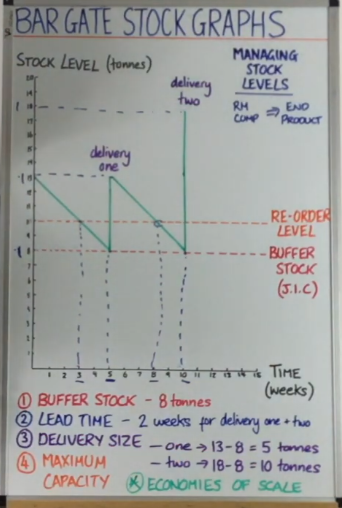 BAR GATE STOCK GRAPHS
STOCK LEVEL (tonnes)
MANAGING
STOCK
LEVELS
RM
COMP ⇒ END
PRODUCT
delivery
two
delivery
one
RE-ORDER
LEVEL
BUFFER
STOCK
(J.I.C)
1 2 3 4 5 6 7 8 9 10 11 12 13 14 15
TIME
(weeks)
① BUFFER STOCK - 8 tonnes
② LEAD TIME - 2 weeks for delivery one + two
③ DELIVERY SIZE - one → 13-8 = 5 tonnes
- two → 18-8 = 10 tonnes
④ MAXIMUM
CAPACITY
* ECONOMIES OF SCALE